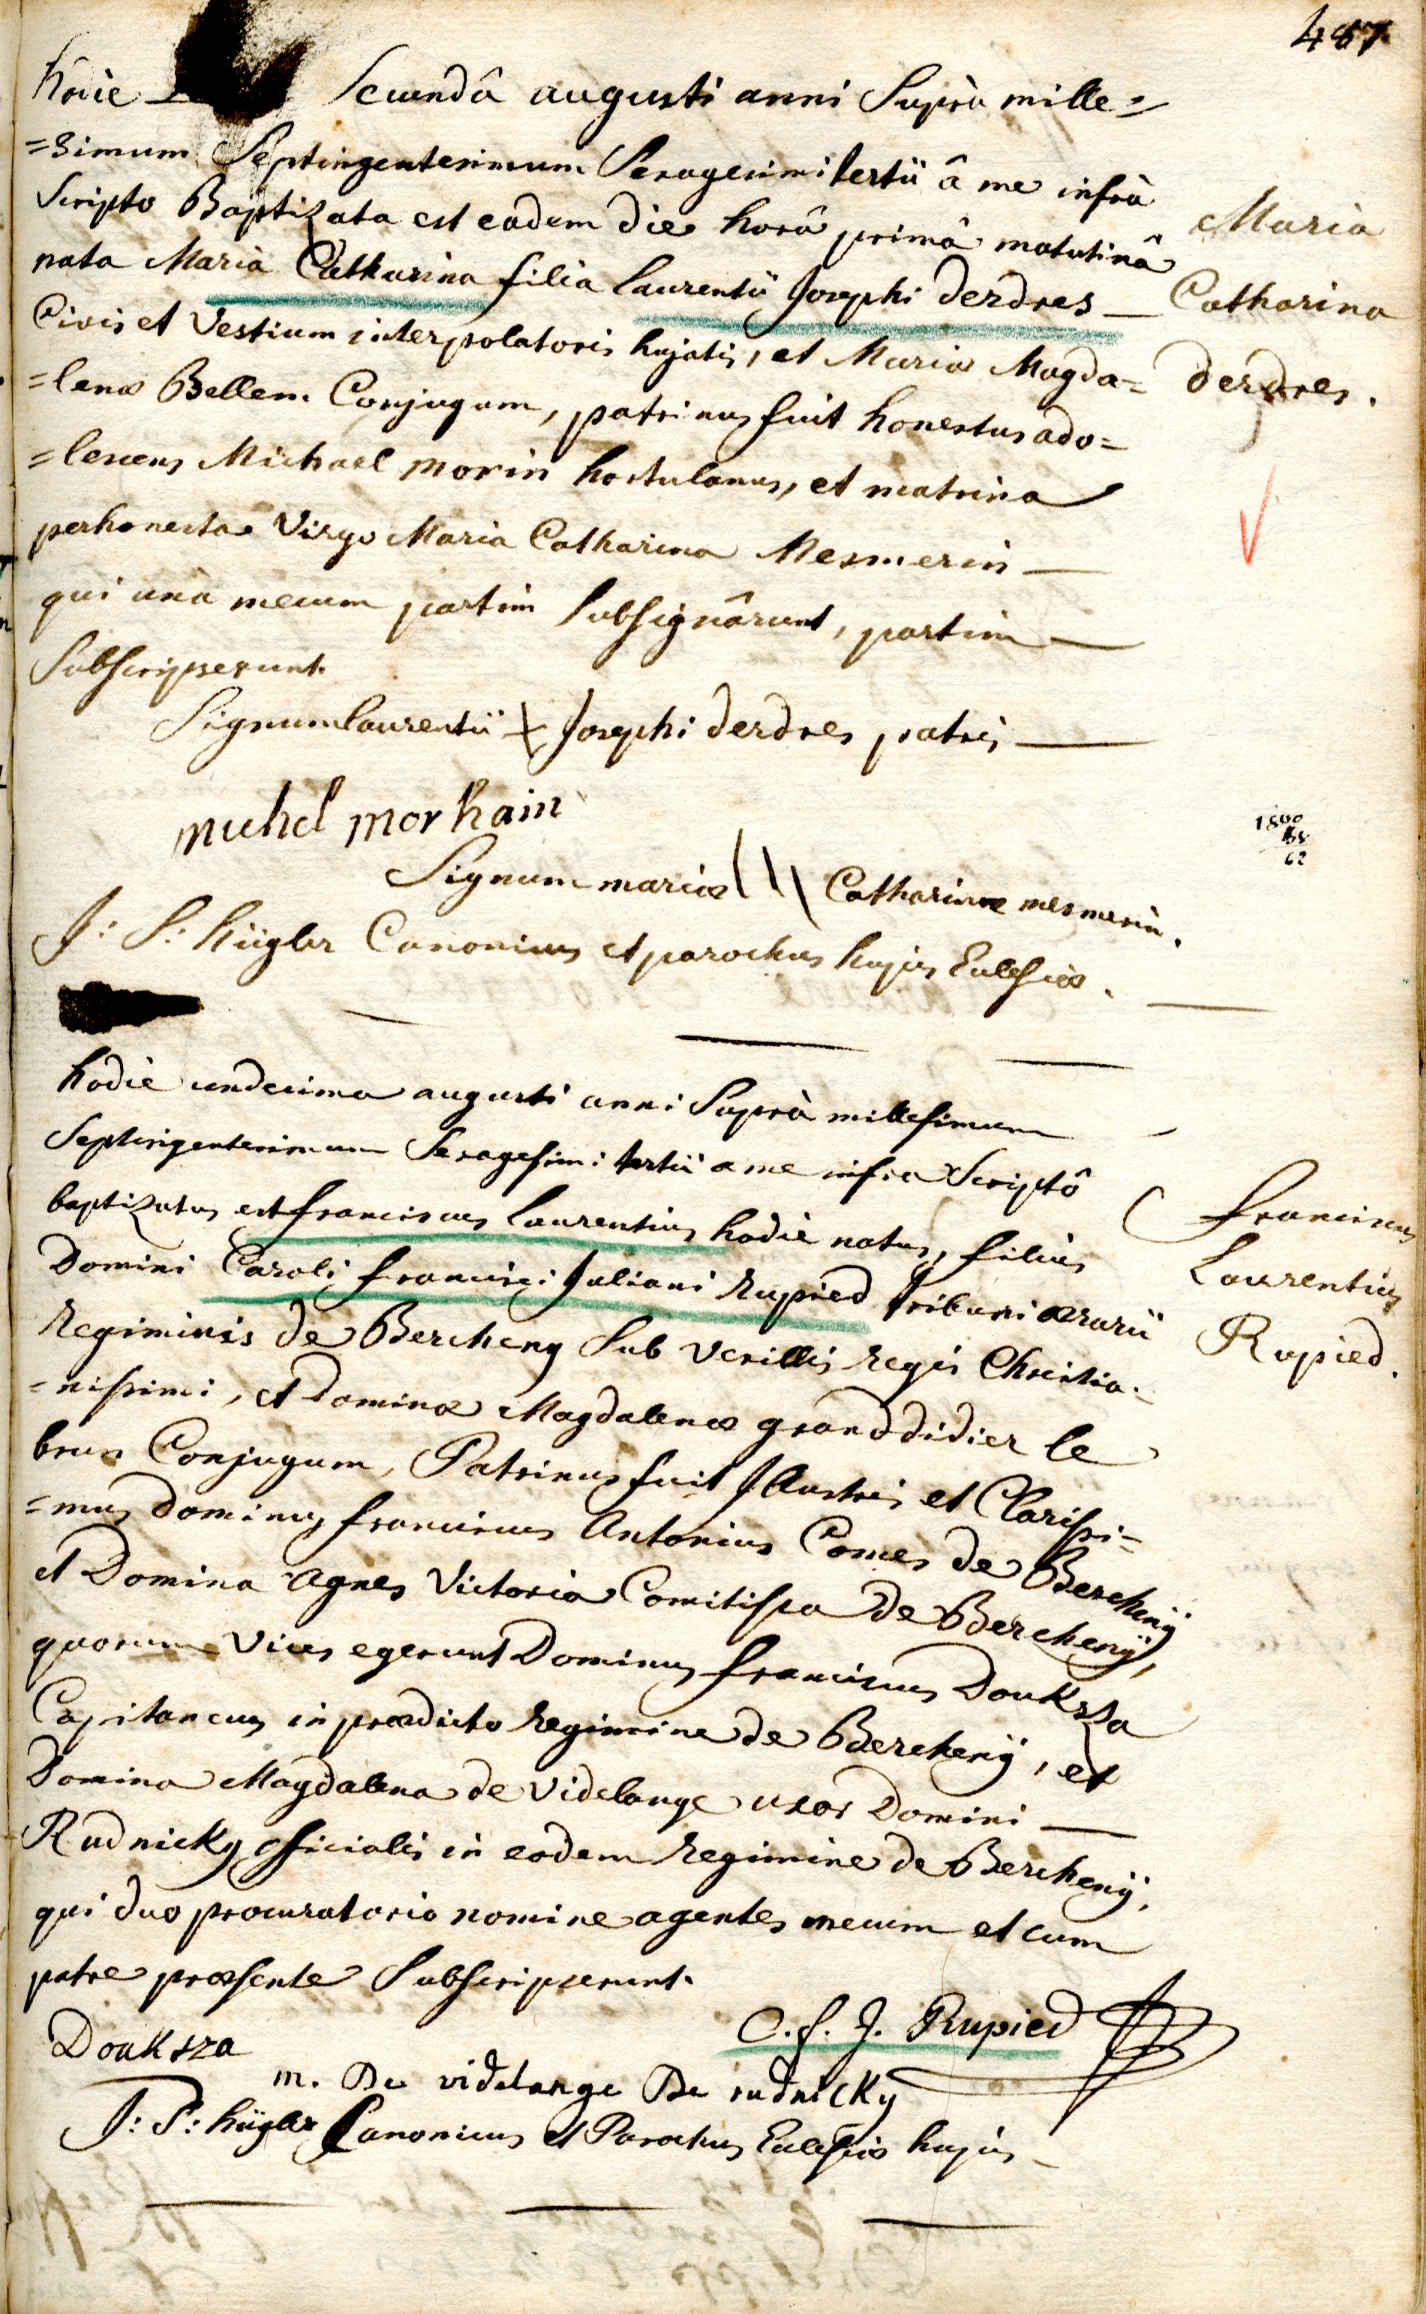 487
hodie secundâ augusti anni suprà mille=
=simum Septingentesimum Sexagesimi tertii â me infrà
Scripto Baptizata est eadem die horâ primâ matutinâ
nata Maria Catharina filia laurentii Josephi derdres
Civis et Vestium interpolatoris hujatis, et Mariæ Magda=
=lenæ Bellem Conjugum, patrinus fuit honestus ado=
=lescens Michael morin hortulanus, et matrina
perhonesta Virgo Maria Catharina Mesmerin
qui unà mecum partim subsignârunt, partim
subscripserunt.
Maria
Catharina
derdres.
Signum laurentii + Josephi derdres patris
michel morhain
1800
62
Signum mariæ \\\ Catharinæ mesmerin.
J: P: hügler Canonicus et parochus hujus Ecclesiæ.
hodie undecima augusti anni suprà millesimum
Septingentesimum Sexagesimi tertii a me infra Scriptô
baptizatus est franciscus laurentius hodie natus, filius
Domini Caroli francisci Juliani Rupied tribuni ærarii
Regiminis de Bercheny sub vexillis regis Christia=
=nissimi, et Dominæ Magdalenæ granddidier le
brun Conjugum, Patrinus fuit Illustris et Clarissi=
=mus dominus franciscus Antonius Comes de Berchenÿ
et Domina Agnes Victoria Comitissa de Berchenÿ,
quorum vices egerunt Dominus franciscus Doukxza
Capitaneus in prædicto Regimine de Berchenÿ, et
Domina Magdalena de Videlange uxor Domini
Rudnicky officialis in eodem Regimine de Berchenÿ,
qui duo procuratorio nomine agentes mecum et cum
patre præsente subscripserunt.
Franciscus
Laurentius
Rupied.
C. f. J. Rupied
Douksza
m. De videlange De rudnicky
J: P: hügler Canonicus et Parochus Ecclesiæ hujus